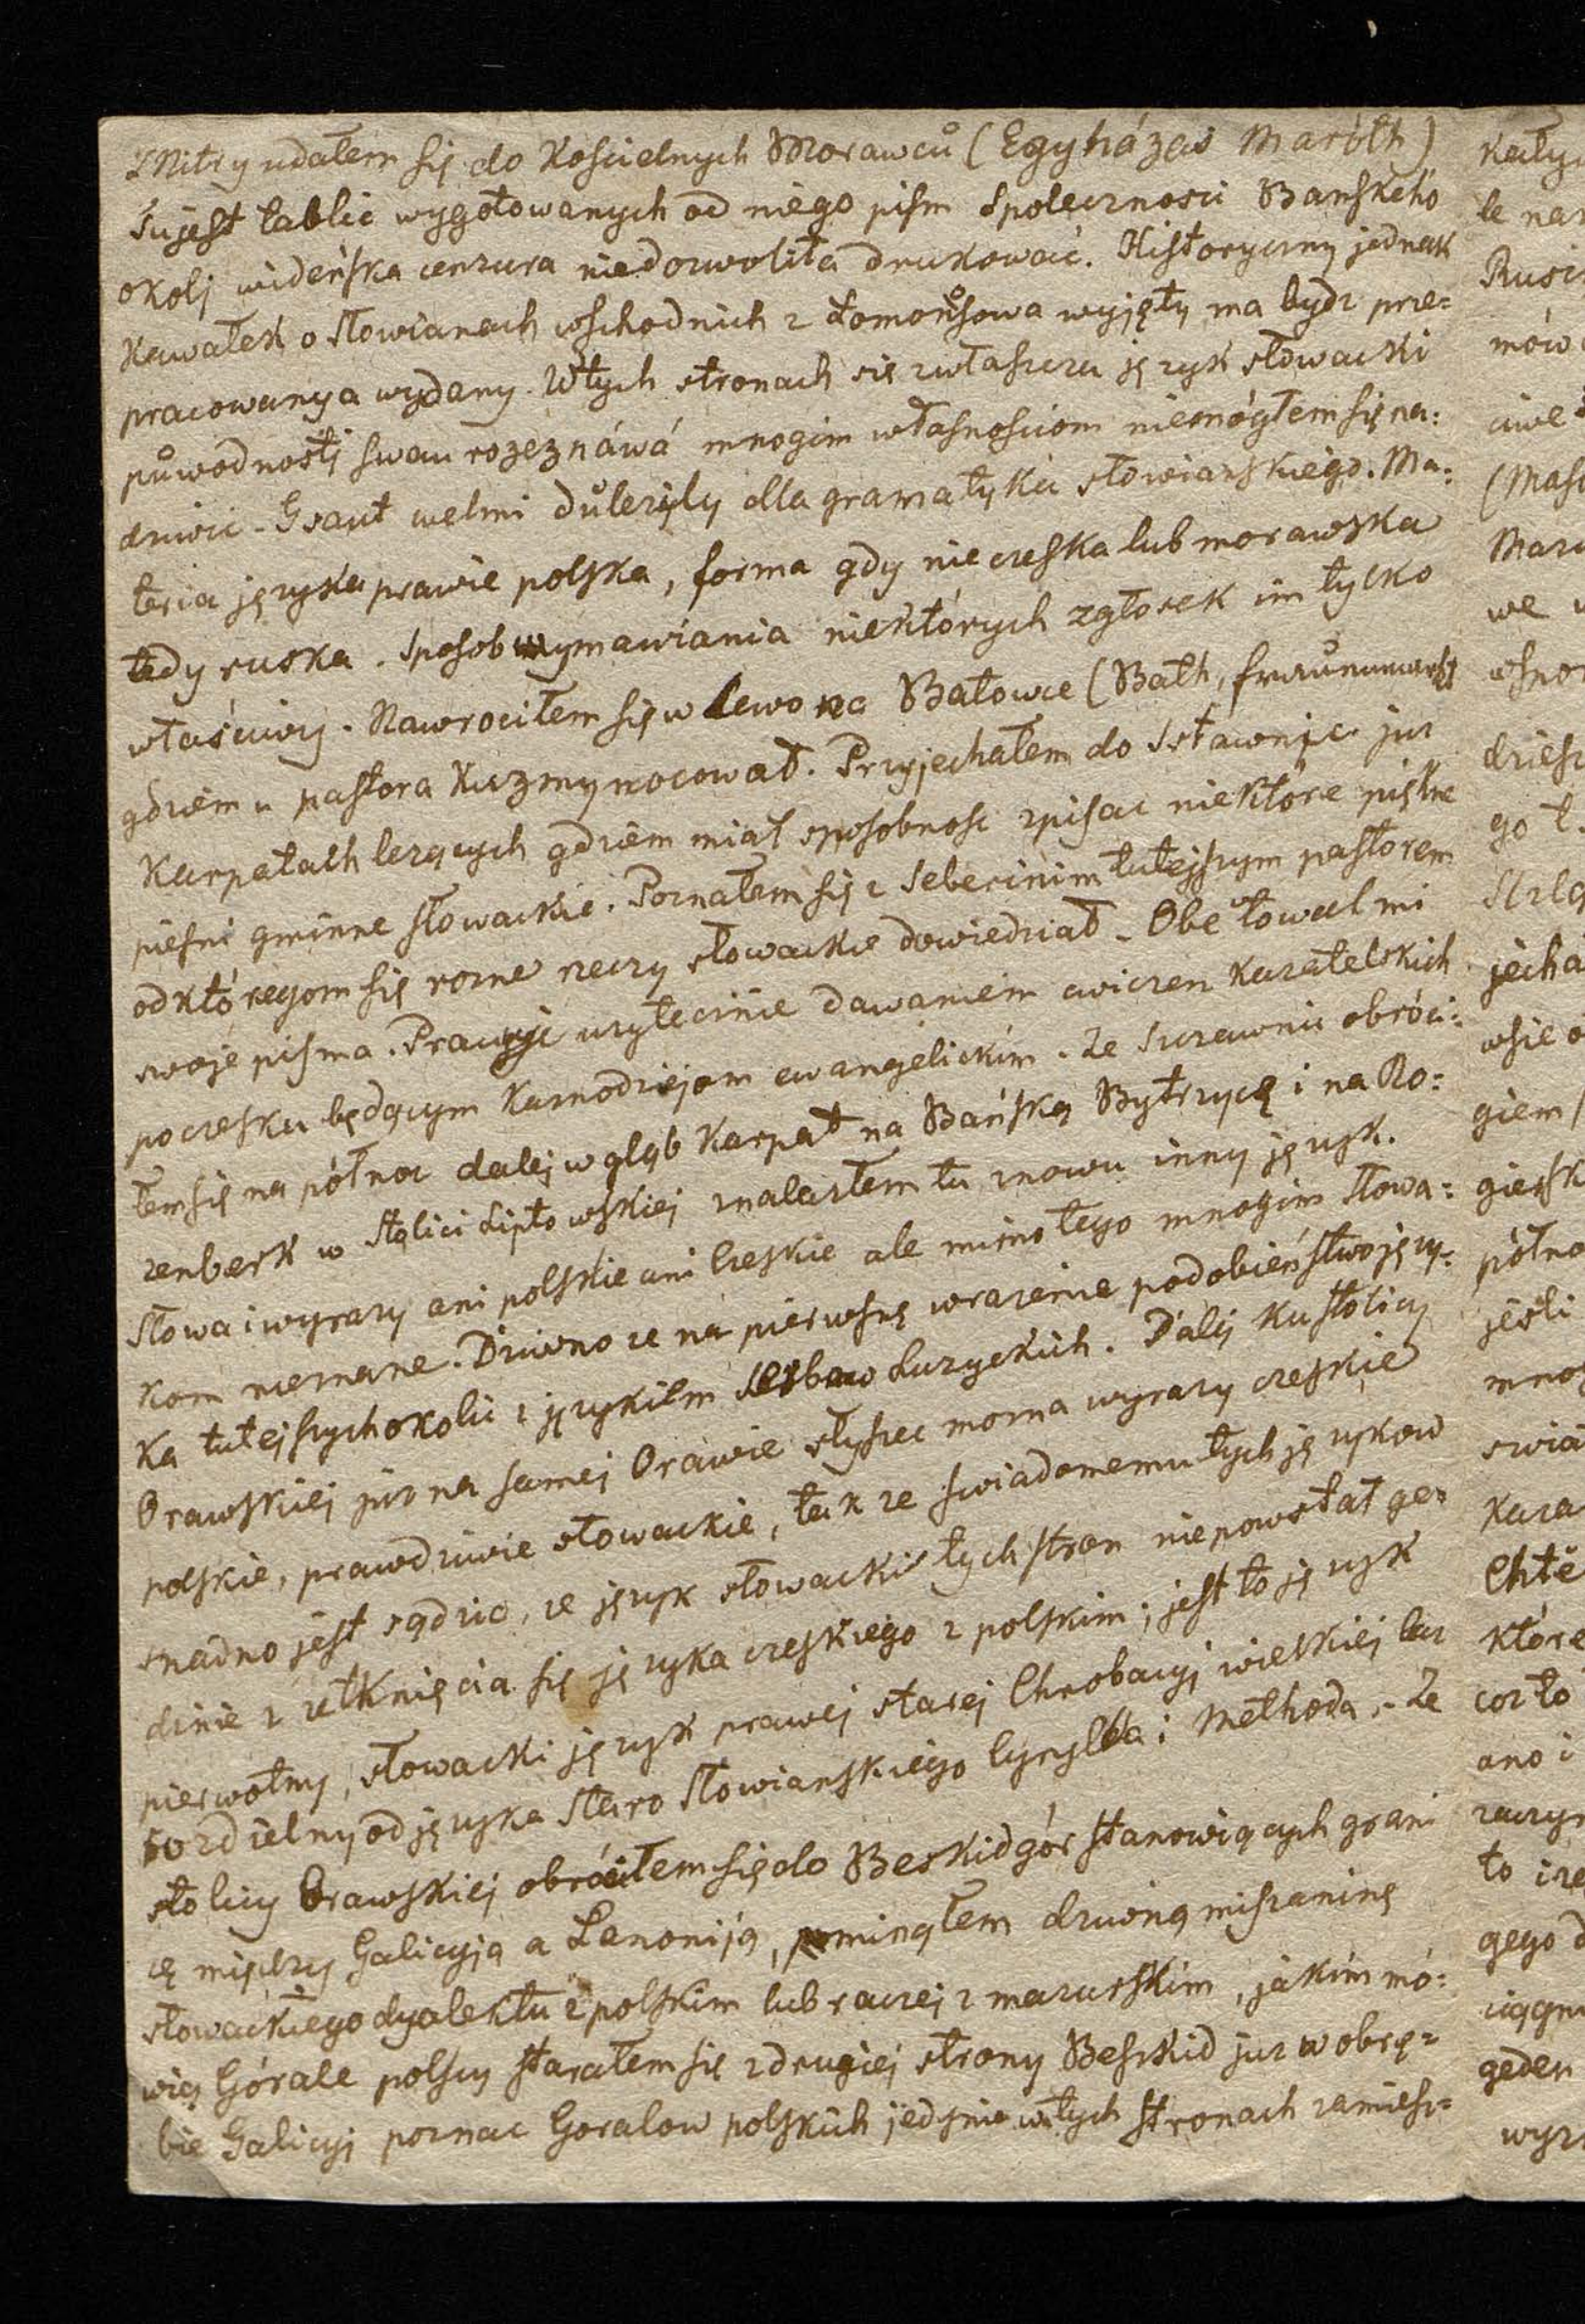 z Nitry udałem się do Kościelnych Morawců (Egyházas Maróth)
Tu jest tablic wygotowanych od niego pism Społecznosci Banskeho
okolj wideńska cenzura niedozwoliła drukować. Historyczny jednak
Kawałek o Słowianach wschodnich z Łomońsowa wyjęty ma bydz prze=
pracowany a wydany. W tych stronach się zwłaszcza język słowacki
půwodnostj swau rozeznáwá mnogim własnosciom niemógłem się na=
dziwic. Gsaut welmi důležily dla gramatyka słowianskiego. Ma=
teria języka prawie polska, forma gdy nie czeska lub morawska
tedy ruska. Sposob wymawiania niektórych zgłosek im tylko
właściwy. Nawrociłem się w lewo na Batowce (Bath,
gdziem u pastora Kuzmy nocował. Przyjechałem do Sstawnic juz
Karpatach lezących gdziem miał sposobnosc zpisac niektóre piękne
piesni gminne słowackie. Poznałem się z Seberinim tutejszym pastorem
od któregom się rozne rzeczy słowackie dowiedział. Obětowal mi
swoje pisma. Pracuje uzytecznie dawaniem cwiczen Kazatelskich
po czesku będącym Kaznodziejom ewangelickim. Ze Sczawnic obróci=
łem się na północ dalej w głąb Karpat na Bańską Bytrzycę i na Ro=
zenberk w Stolici Liptowskiej znalazłem tu znowu inny język.
Słowa i wyrazy ani polskie ani Czeskie ale mimo tego mnogim Słowa=
kom nieznane. Dziwno ze na pierwsze wrazenie podobieństwo języ=
ka tutejszych okolic z językiem Serbow Luzyckich. Dalij ku stolicy
Orawskiej juz na samej Orawie słyszec mozna wyrazy czeskie
polskie, prawdziwie słowackie, tak ze swiadomemu tych języków
snadno jest sądzic, ze język słowacki tych stron niepowstał ge=
dinie z zetknięcia się języka czeskiego z polskim; jest to język
pierwotny, słowacki język prawej starej Chrobacyj wielkiej lecz
rozdzielny od języka Staro Słowianskiego Cyrylla i Methoda. Ze
stolicy Orawskiej obróciłem się do Beskid gór stanowiących grani
cę między Galicyją a Panoniją, pominąłem dziwną miszaninę
słowackiego dyalektu z polskim lub raczej z mazurskim, jakim mó=
wią Górale polscy starałem się z drugiej strony Beskid juz w obrę=
bie Galicyj poznac Goralow polskich jedynie w tych stronach zamiesz=